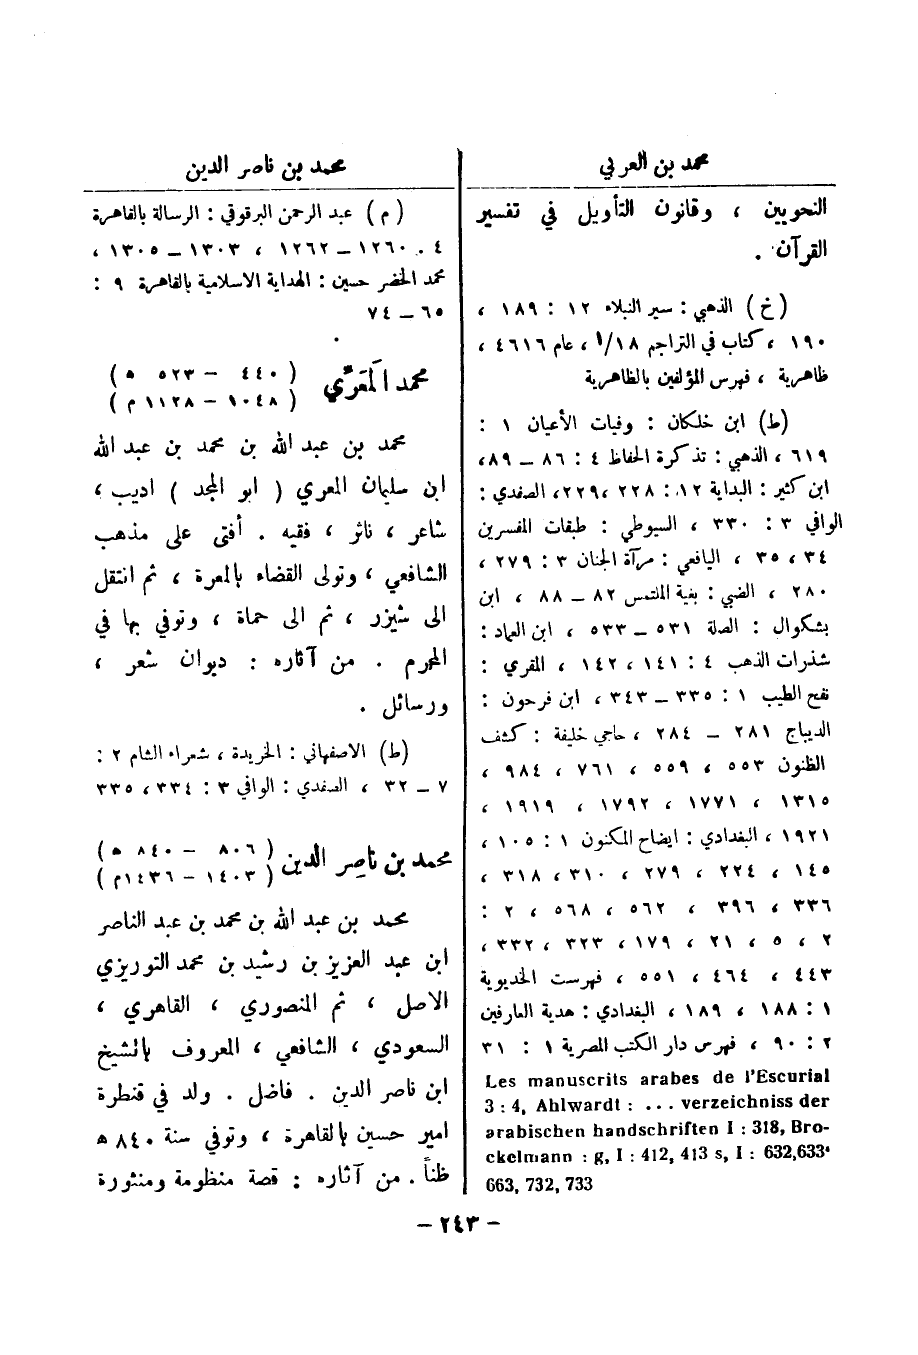 محمد بن العربي
النحويين ، وقانون التأويل في تفسير
القرآن .
(خ) الذهبي : سير النبلاء ١٢ : ١٨٩ ،
١٩٠ ، كتاب في التراجم ١/١٨ ، عام ٤٦١٦ ،
ظاهرية ، فهرس المؤلفين بالظاهرية
(ط) ابن خلكان : وفيات الأعيان ١ :
٦١٩ ، الذهبي : تذكرة الحفاظ ٤ : ٨٦ – ٨٩ ،
ابن كثير : البداية ١٢ : ٢٢٨ ، ٢٢٩ ، الصفدي :
الوافي ٣ : ٣٣٠ ، السيوطي : طبقات المفسرين
٣٤ ، ٣٥ ، اليافعي : مرآة الجنان ٣ : ٢٧٩ ،
٢٨٠ ، الضبي : بغية الملتمس ٨٢ – ٨٨ ، ابن
بشكوال : الصلة ٥٣١ – ٥٣٣ ، ابن العماد :
شذرات الذهب ٤ : ١٤١ ، ١٤٢ ، المقري :
نفح الطيب ١ : ٣٣٥ – ٣٤٣ ، ابن فرحون :
الديباج ٢٨١ – ٢٨٤ ، حاجي خليفة : كشف
الظنون ٥٥٣ ، ٥٥٩ ، ٧٦١ ، ٩٨٤ ،
١٣١٥ ، ١٧٧١ ، ١٧٩٢ ، ١٩١٩ ،
١٩٢١ ، البغدادي : ايضاح المكنون ١ : ١٠٥ ،
١٤٥ ، ٢٢٤ ، ٢٧٩ ، ٣١٠ ، ٣١٨ ،
٣٣٦ ، ٣٩٦ ، ٥٦٢ ، ٥٦٨ ، ٢ :
٢ ، ٥ ، ٢١ ، ١٧٩ ، ٣٢٣ ، ٣٣٢ ،
٤٤٣ ، ٤٦٤ ، ٥٥١ ، فهرست الخديوية
١ : ١٨٨ ، ١٨٩ ، البغدادي : هدية العارفين
٢ : ٩٠ ، فهرس دار الكتب المصرية ١ : ٣١
Les manuscrits arabes de l'Escurial
3 : 4, Ahlwardt : ... verzeichniss der
arabischen handschriften I : 318, Bro-
ckelmann : g, I : 412, 413 s, I : 632,633'
663, 732, 733
محمد بن ناصر الدين
(م) عبد الرحمن البرقوقي : الرسالة بالقاهرة
٤ . ١٢٦٠ – ١٢٦٢ ، ١٣٠٣ – ١٣٠٥ ،
محمد الخضر حسين : الهداية الاسلامية بالقاهرة ٩ :
٦٥ – ٧٤
محمد المَعَرّي ( ٤٤٠ – ٥٢٣ ه )
( ١٠٤٨ – ١١٢٨ م )
محمد بن عبد الله بن محمد بن عبد الله
ابن سليمان المعري ( ابو المجد ) اديب ،
شاعر ، ناثر ، فقيه . أفتى على مذهب
الشافعي ، وتولى القضاء بالمعرة ، ثم انتقل
الى شيزر ، ثم الى حماة ، وتوفي بها في
المحرم . من آثاره : ديوان شعر ،
ورسائل .
(ط) الاصفهاني : الخريدة ، شعراء الشام ٢ :
٧ – ٣٢ ، الصفدي : الوافي ٣ : ٣٣٤ ، ٣٣٥
محمد بن ناصِر الدين ( ٨٠٦ – ٨٤٠ ه )
( ١٤٠٣ – ١٤٣٦م )
محمد بن عبد الله بن محمد بن عبد الناصر
ابن عبد العزيز بن رشيد بن محمد التوريزي
الاصل ، ثم المنصوري ، القاهري ،
السعودي ، الشافعي ، المعروف بالشيخ
ابن ناصر الدين . فاضل . ولد في قنطرة
امير حسين بالقاهرة ، وتوفي سنة ٨٤٠ ه
ظناً . من آثاره : قصة منظومة ومنثورة
– ٢٤٣ –